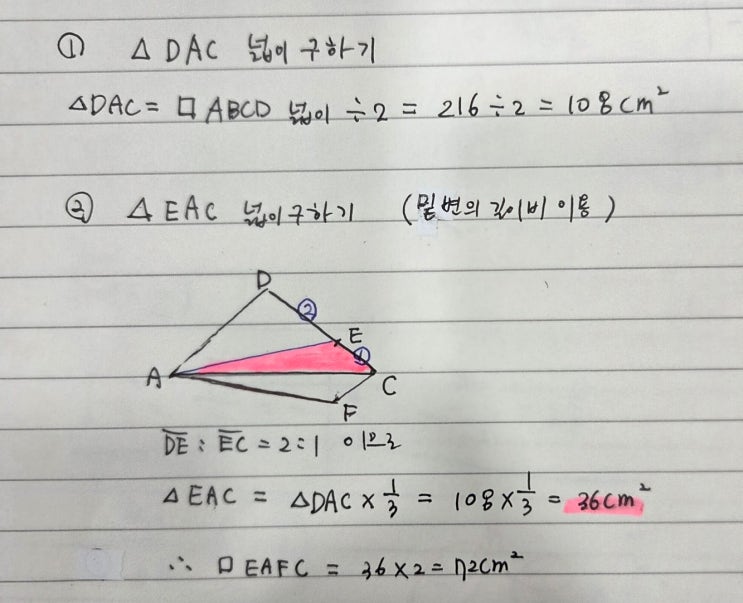 ① △DAC 넓이 구하기
△DAC = □ABCD 넓이 ÷2 = 216÷2 = 108cm²
② △EAC 넓이구하기 (밑변의 길이비 이용)
D
②
E
①
A
C
F
D̅E̅ : E̅C̅ = 2:1 이므로
△EAC = △DAC × 1/3 = 108 × 1/3 = 36cm²
∴ □EAFC = 36×2 = 72cm²